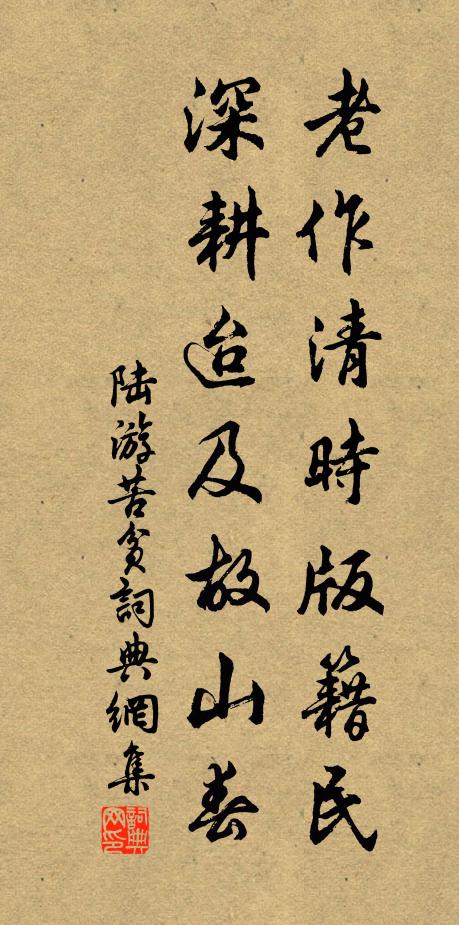 老作清時版籍民
深耕迨及故山春
陸游苦貧詞典網集
詞典網印